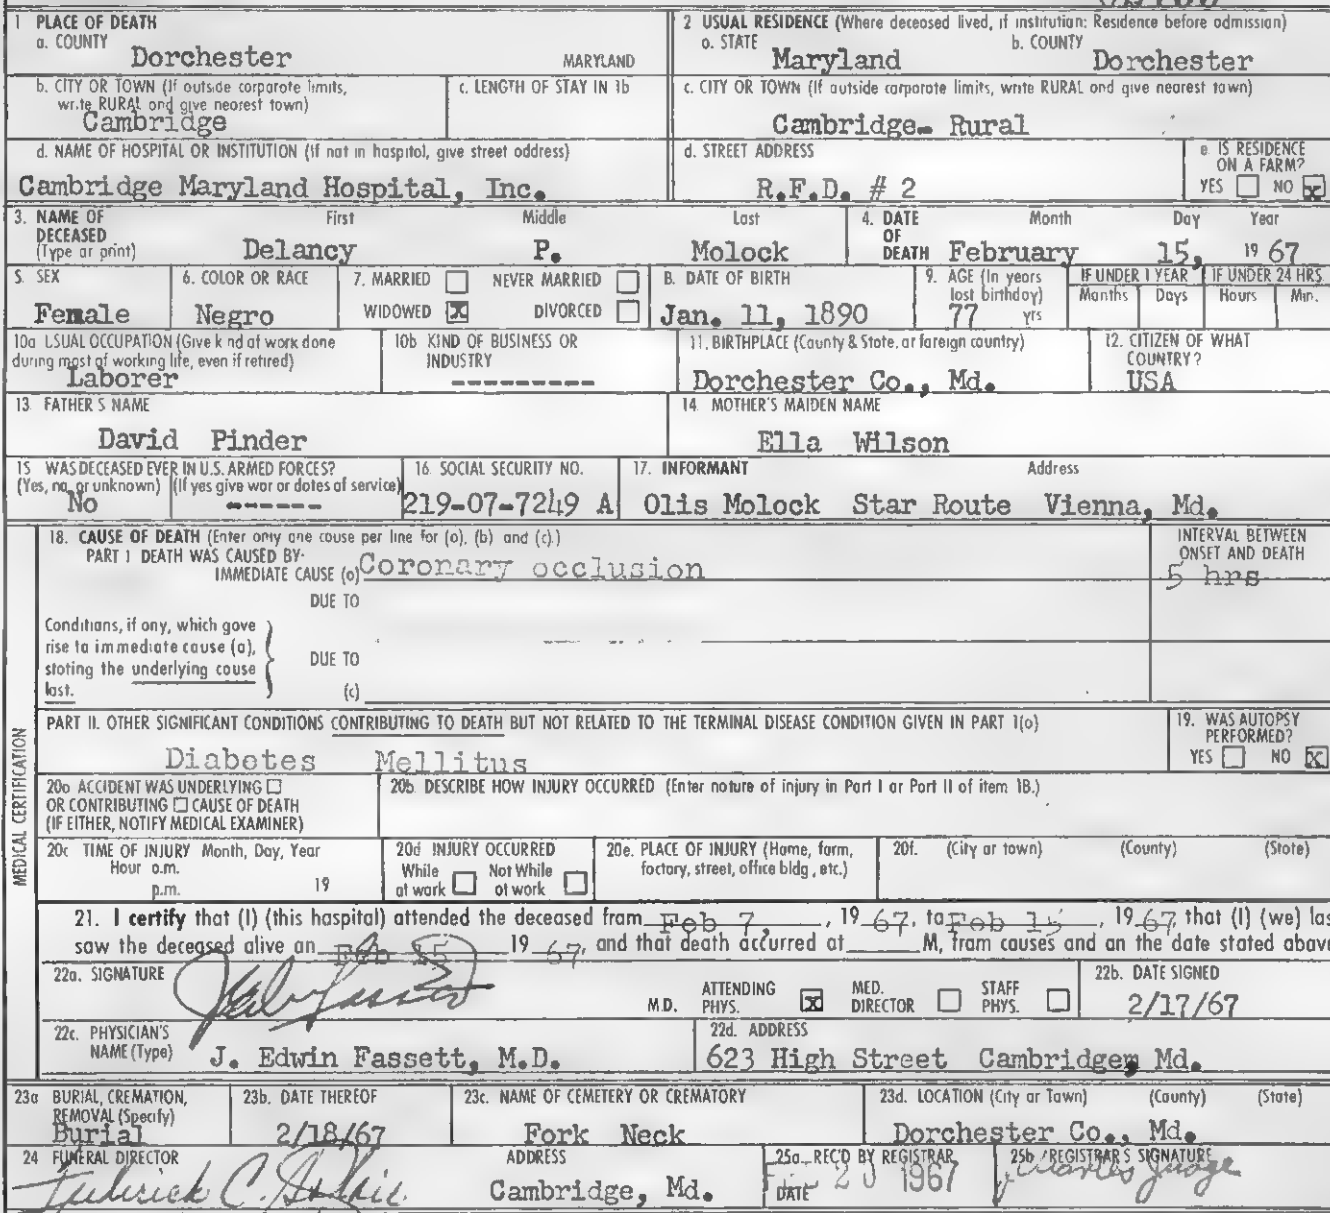 1 PLACE OF DEATH
a. COUNTY
Dorchester MARYLAND
2 USUAL RESIDENCE (Where deceased lived, if institution: Residence before admission)
a. STATE Maryland b. COUNTY Dorchester
b. CITY OR TOWN (If outside corporate limits, write RURAL and give nearest town)
Cambridge
c. LENGTH OF STAY IN 1b
c. CITY OR TOWN (If outside corporate limits, write RURAL and give nearest town)
Cambridge- Rural
d. NAME OF HOSPITAL OR INSTITUTION (If not in hospital, give street address)
Cambridge Maryland Hospital, Inc.
d. STREET ADDRESS
R.F.D. # 2
e. IS RESIDENCE ON A FARM?
YES NO x
3. NAME OF DECEASED (Type or print)
First Middle Last
Delancy P. Molock
4. DATE OF DEATH
Month Day Year
February 15, 19 67
5. SEX
Female
6. COLOR OR RACE
Negro
7. MARRIED NEVER MARRIED
WIDOWED x DIVORCED
8. DATE OF BIRTH
Jan. 11, 1890
9. AGE (In years last birthday)
77 yrs
IF UNDER 1 YEAR
Months Days
IF UNDER 24 HRS.
Hours Min.
10a USUAL OCCUPATION (Give kind of work done during most of working life, even if retired)
Laborer
10b KIND OF BUSINESS OR INDUSTRY
----------
11. BIRTHPLACE (County & State, or foreign country)
Dorchester Co., Md.
12. CITIZEN OF WHAT COUNTRY?
USA
13. FATHER'S NAME
David Pinder
14. MOTHER'S MAIDEN NAME
Ella Wilson
15 WAS DECEASED EVER IN U.S. ARMED FORCES?
(Yes, no, or unknown) (If yes give war or dates of service)
No ------
16. SOCIAL SECURITY NO.
219-07-7249 A
17. INFORMANT Address
Olis Molock Star Route Vienna, Md.
MEDICAL CERTIFICATION
18. CAUSE OF DEATH (Enter only one cause per line for (a), (b) and (c).)
PART I DEATH WAS CAUSED BY:
IMMEDIATE CAUSE (a) Coronary occlusion
INTERVAL BETWEEN ONSET AND DEATH
5 hrs
DUE TO
Conditions, if any, which gave rise to immediate cause (a), stating the underlying cause last.
DUE TO
(c)
PART II. OTHER SIGNIFICANT CONDITIONS CONTRIBUTING TO DEATH BUT NOT RELATED TO THE TERMINAL DISEASE CONDITION GIVEN IN PART I(a)
Diabetes Mellitus
19. WAS AUTOPSY PERFORMED?
YES NO x
20a ACCIDENT WAS UNDERLYING
OR CONTRIBUTING CAUSE OF DEATH
(IF EITHER, NOTIFY MEDICAL EXAMINER)
20b. DESCRIBE HOW INJURY OCCURRED (Enter nature of injury in Part I or Part II of item 18.)
20c TIME OF INJURY Month, Day, Year
Hour a.m.
p.m. 19
20d INJURY OCCURRED
While at work Not While at work
20e. PLACE OF INJURY (Home, farm, factory, street, office bldg., etc.)
20f. (City or town) (County) (State)
21. I certify that (I) (this hospital) attended the deceased from Feb 7, , 19 67, to Feb 15 , 19 67 that (I) (we) las
saw the deceased alive on Feb 15 19 67, and that death occurred at M, from causes and on the date stated above
22a. SIGNATURE
M.D. ATTENDING PHYS. x MED. DIRECTOR STAFF PHYS.
22b. DATE SIGNED
2/17/67
22c. PHYSICIAN'S NAME (Type)
J. Edwin Fassett, M.D.
22d. ADDRESS
623 High Street Cambridge, Md.
23a BURIAL, CREMATION, REMOVAL (Specify)
Burial
23b. DATE THEREOF
2/18/67
23c. NAME OF CEMETERY OR CREMATORY
Fork Neck
23d. LOCATION (City or Town) (County) (State)
Dorchester Co., Md.
24 FUNERAL DIRECTOR ADDRESS
Cambridge, Md.
25a. REC'D BY REGISTRAR
DATE 20 1967
25b. REGISTRAR'S SIGNATURE
Charles Judge